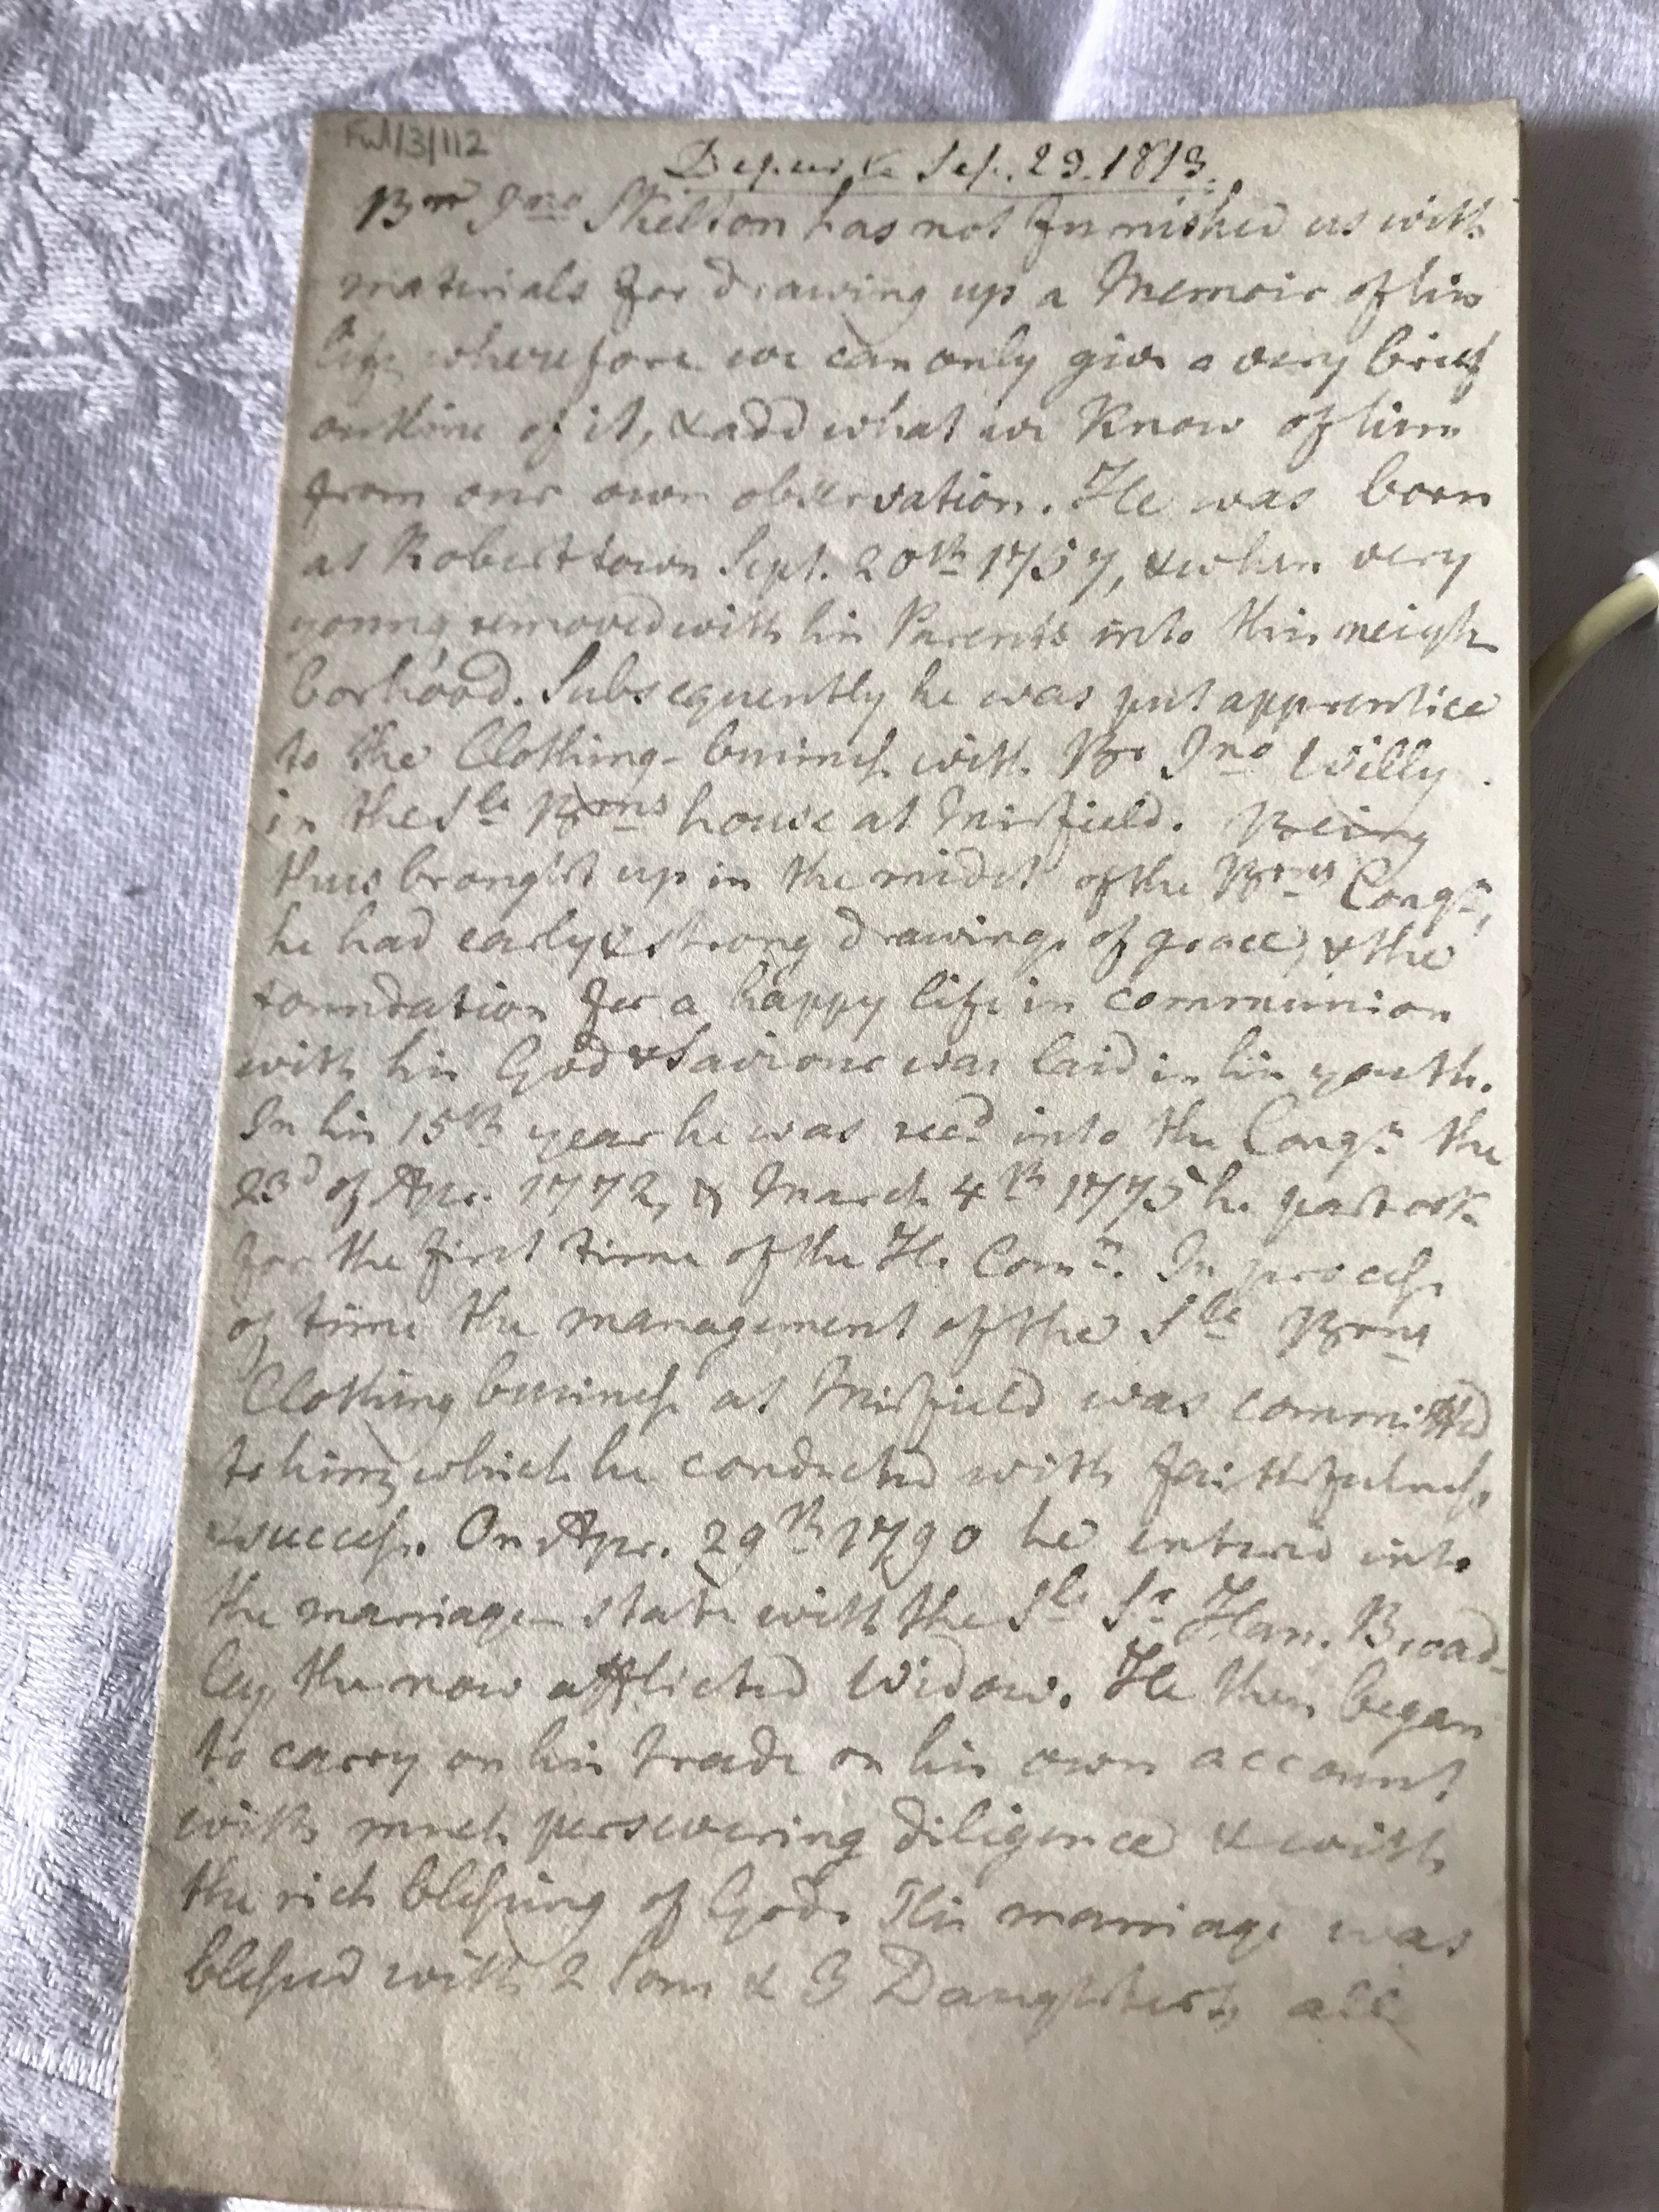 Ful/3/112
Sep. 29. 1813.
Br Jno Skelton has not furnished us with
materials for drawing up a Memoir of his
life, wherefore we can only give a very brief
outline of it, & add what we know of him
from our own observation. He was born
at Roberttown Sept. 20th 1757, & when very
young removed with his Parents into this neigh
borhood. Subsequently he was put apprentice
to the Clothing-business with Br Jno Willy
in the Sle Brns house at Mirfield. Being
thus brought up in the midst of the Brns Congn,
he had early & strong drawings of grace, & the
foundation for a happy life in communion
with his God & Saviour was laid in his youth.
In his 15th year he was recd into the Congn the
23d of Apr. 1772, & March 4th 1775 he partook
for the first time of the H. Comn. In process
of time the management of the Sle Brns
Clothing business at Mirfield was committed
to him, which he conducted with faithfulness
& success. On Apr. 29th 1790 he entered into
the marriage state with the Sle Sr Han. Broad-
ley the now afflicted Widow. He then began
to carry on his trade on his own account
with much persevering diligence & with
the rich blessing of God. His marriage was
blessed with 2 Sons & 3 Daughters, all